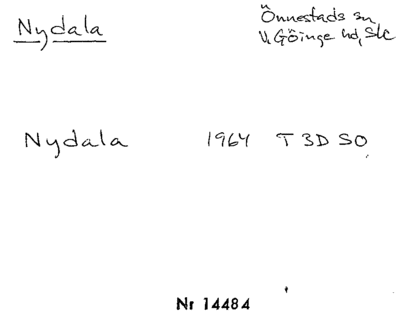 Nydala
Önnestads sn
V. Göinge hd, Skåne
Nydala 1964 T 3D SO
Nr 14484